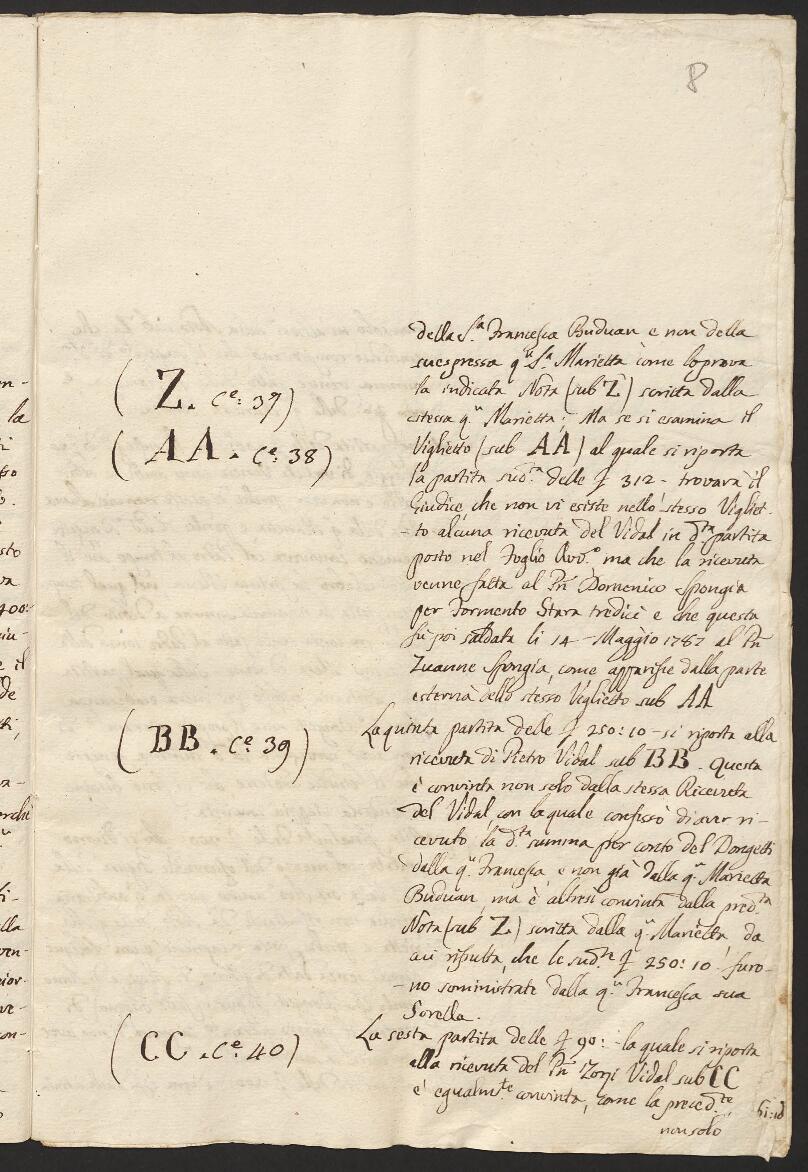 8
della S.ra Francesca Buduan e non della
suespressa q.m S.ra Marietta come lo prova
la indicata Nota (sub Z) scritta dalla
stessa q.m Marietta; Ma se si esamina il
Viglietto (sub AA) al quale si riporta
la partita sud.ta delle £ 312 - trovarà il
Giudice, che non vi esiste nello stesso Vigliet-
-to alcuna ricevuta del Vidal in d.ta partita
posto nel Foglio Avv.o ma che la ricevuta
venne fatta al Pn Domenico Spongia
per Formento Stara tredici e che questa
fù poi saldata li 14 - Maggio 1787 al Pn
Zuanne Spongia, come apparisse dalla parte
esterna dello stesso Viglietto sub AA
(Z. c.e: 37)
(AA. c.e: 38)
La quinta partita delle £ 250:10 - si riporta alla
ricevuta di Pietro Vidal sub BB. Questa
è convinta non solo dalla stessa Ricevuta
del Vidal, con la quale confessò di aver ri-
cevuto la d.ta summa per conto del Dongetti
dalla q.m Francesca, e non già dalla q.m Marietta
Buduan, ma è altresì convinta dalla pred.ta
Nota (sub Z.) scritta dalla q.m Marietta, da
cui risulta, che le sud.te £ 250:10 furo-
-no soministrate dalla q.m Francesca sua
Sorella.
(BB. c.e: 39)
La sesta partita delle £ 90: - la quale si riporta
alla ricevuta del Pn Zorzi Vidal sub CC
è egualm.te convinta, come la preced.te,
non solo
(CC. c.e: 40)